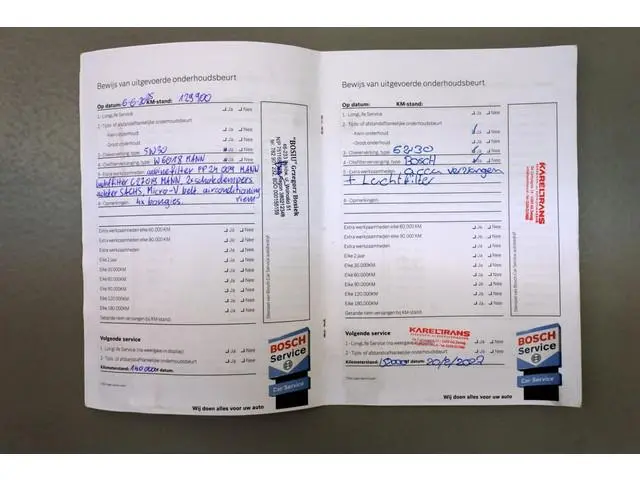 Bewijs van uitgevoerde onderhoudsbeurt
Op datum: KM-stand: 129900
1 - LongLife Service Ja Nee
2 - Tijds- of afstandafhankelijke onderhoudsbeurt
- Klein onderhoud Ja Nee
- Groot onderhoud Ja Nee
3 - Olieverversing, type: 5W30 Ja Nee
4 - Oliefiltervervanging, type: W6018 MANN Ja Nee
5 - Extra werkzaamheden: MANN
luchtfilter C27019 MANN, 2x schokdempers
achter SACHS, Micro-V belt airconditioning
riem
6 - Opmerkingen: 4x bougies
Extra werkzaamheden elke 60.000 KM Ja Nee
Extra werkzaamheden elke 90.000 KM Ja Nee
Extra werkzaamheden Ja Nee
Elke 2 jaar Ja Nee
Elke 30.000KM Ja Nee
Elke 60.000KM Ja Nee
Elke 90.000KM Ja Nee
Elke 120.000KM Ja Nee
Elke 180.000KM Ja Nee
Getande riem vervangen bij KM-stand:
Volgende service
1 - LongLife Service (na weergave in display) Ja Nee
2 - Tijds- of afstandafhankelijke onderhoudsbeurt Ja Nee
Kilometerstand: datum:
BOSCH
Service
Car Service
Wij doen alles voor uw auto
"BOSIU" Grzegorz Bosiek
Stempel van Bosch Car Service autobedrijf
Bewijs van uitgevoerde onderhoudsbeurt
Op datum: KM-stand:
1 - LongLife Service Ja Nee
2 - Tijds- of afstandafhankelijke onderhoudsbeurt
- Klein onderhoud Ja Nee
- Groot onderhoud Ja Nee
3 - Olieverversing, type: Ja Nee
4 - Oliefiltervervanging, type: BOSCH Ja Nee
5 - Extra werkzaamheden: accu vervangen
+ Luchtfilter
6 - Opmerkingen:
Extra werkzaamheden elke 60.000 KM Ja Nee
Extra werkzaamheden elke 90.000 KM Ja Nee
Extra werkzaamheden Ja Nee
Elke 2 jaar Ja Nee
Elke 30.000KM Ja Nee
Elke 60.000KM Ja Nee
Elke 90.000KM Ja Nee
Elke 120.000KM Ja Nee
Elke 180.000KM Ja Nee
Getande riem vervangen bij KM-stand:
KARELTRANS
Stempel van Bosch Car Service autobedrijf
Volgende service
KARELTRANS
1 - LongLife Service (na weergave in display) Ja Nee
2 - Tijds- of afstandafhankelijke onderhoudsbeurt Ja Nee
Kilometerstand: datum:
BOSCH
Service
Car Service
Wij doen alles voor uw auto